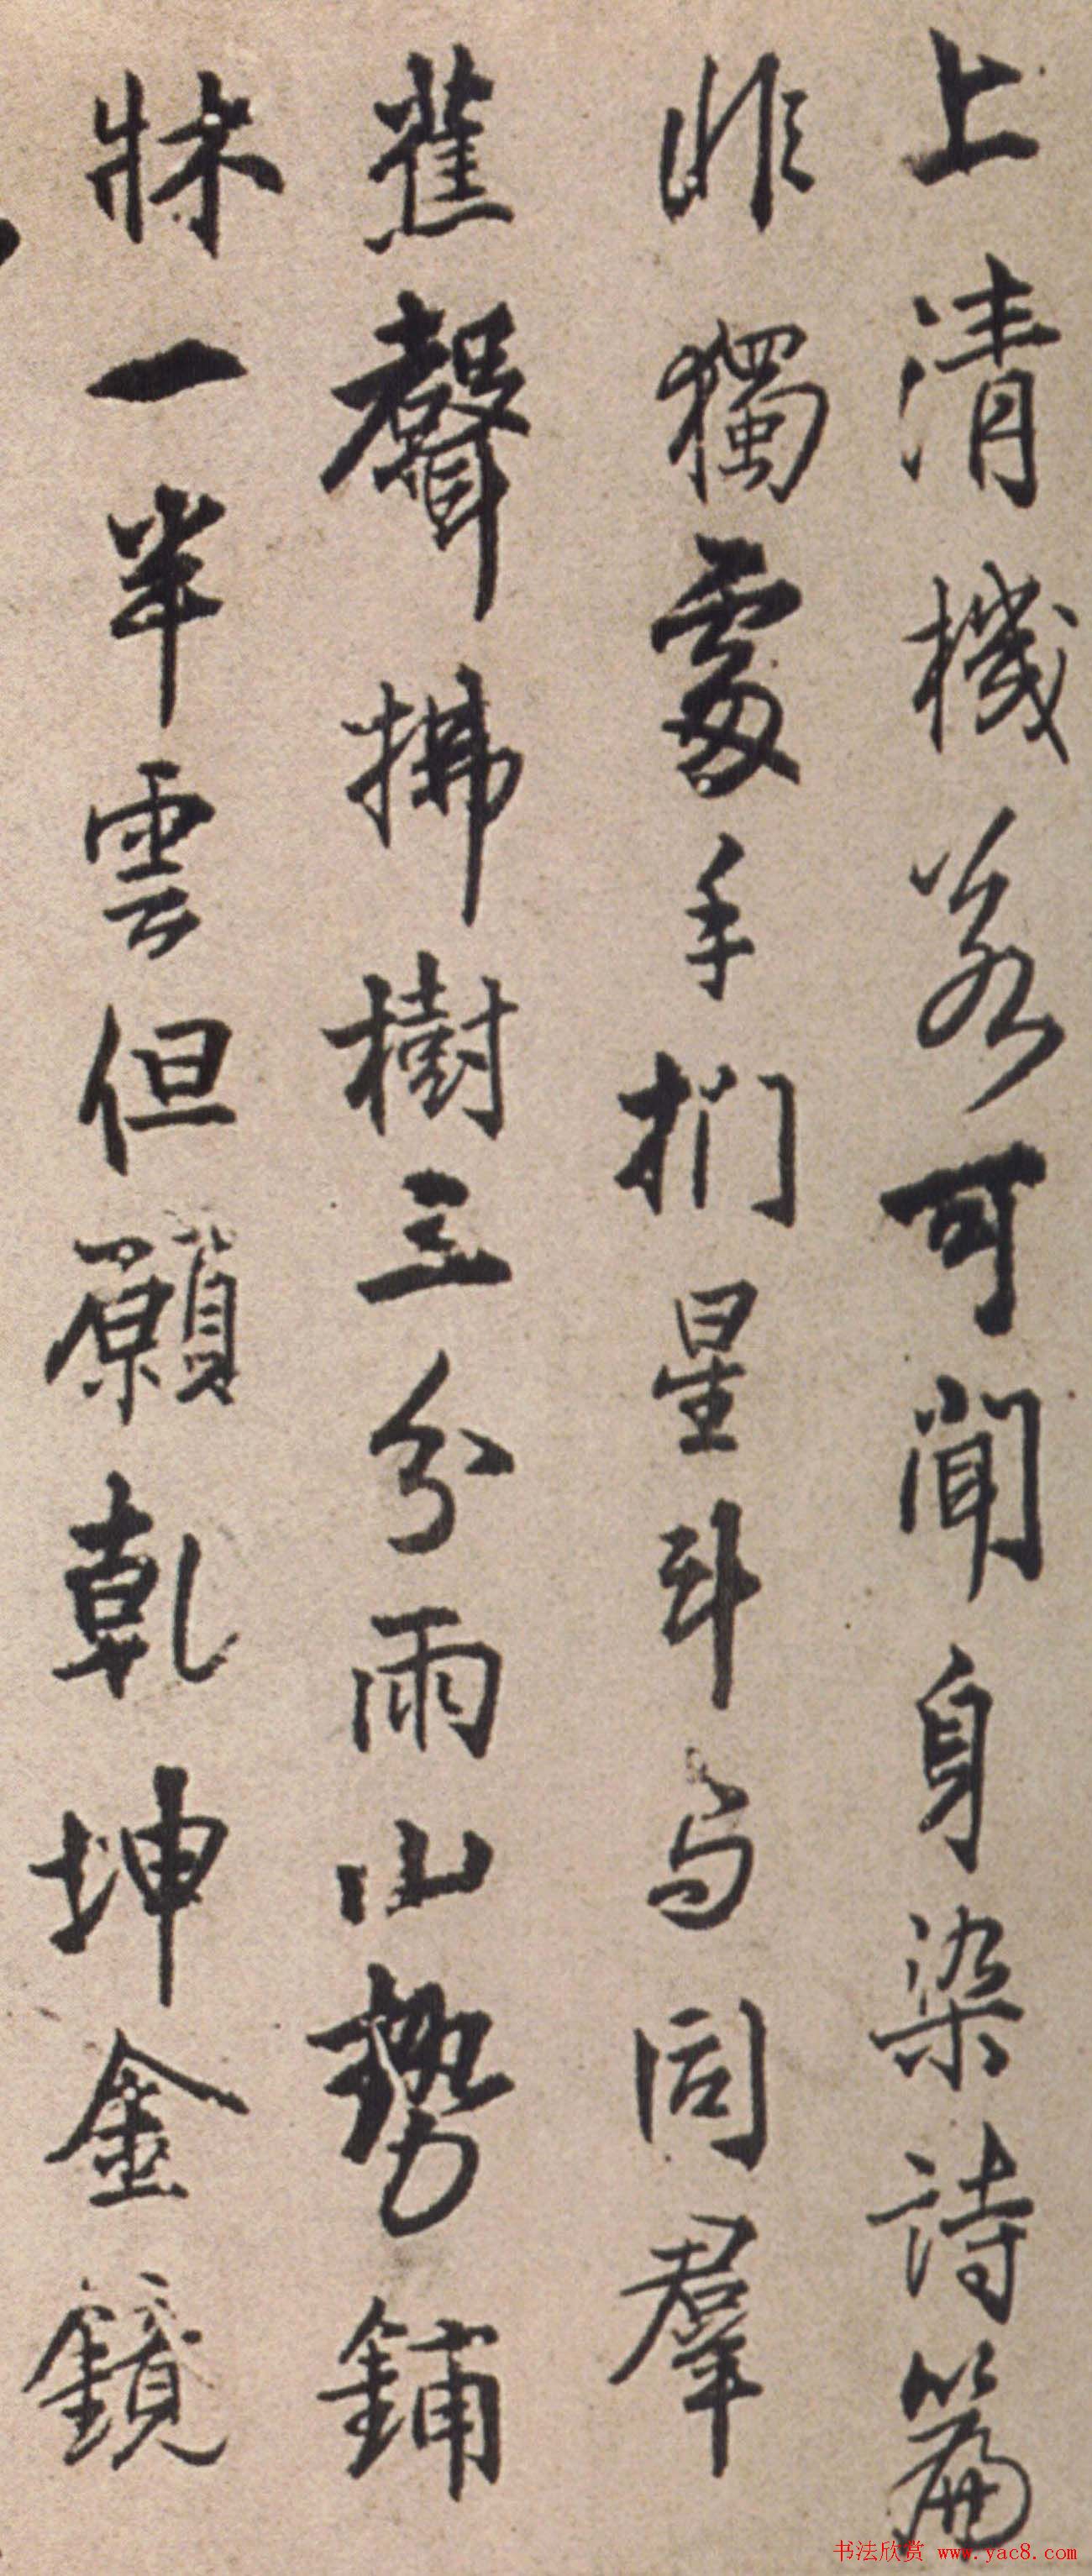 上清機若可聞身染詩篇
非獨處手捫星斗与同羣
蕉聲拂樹三分雨山勢鋪
牀一半雲但願乾坤金鏡
书法欣赏 www.yac8.com